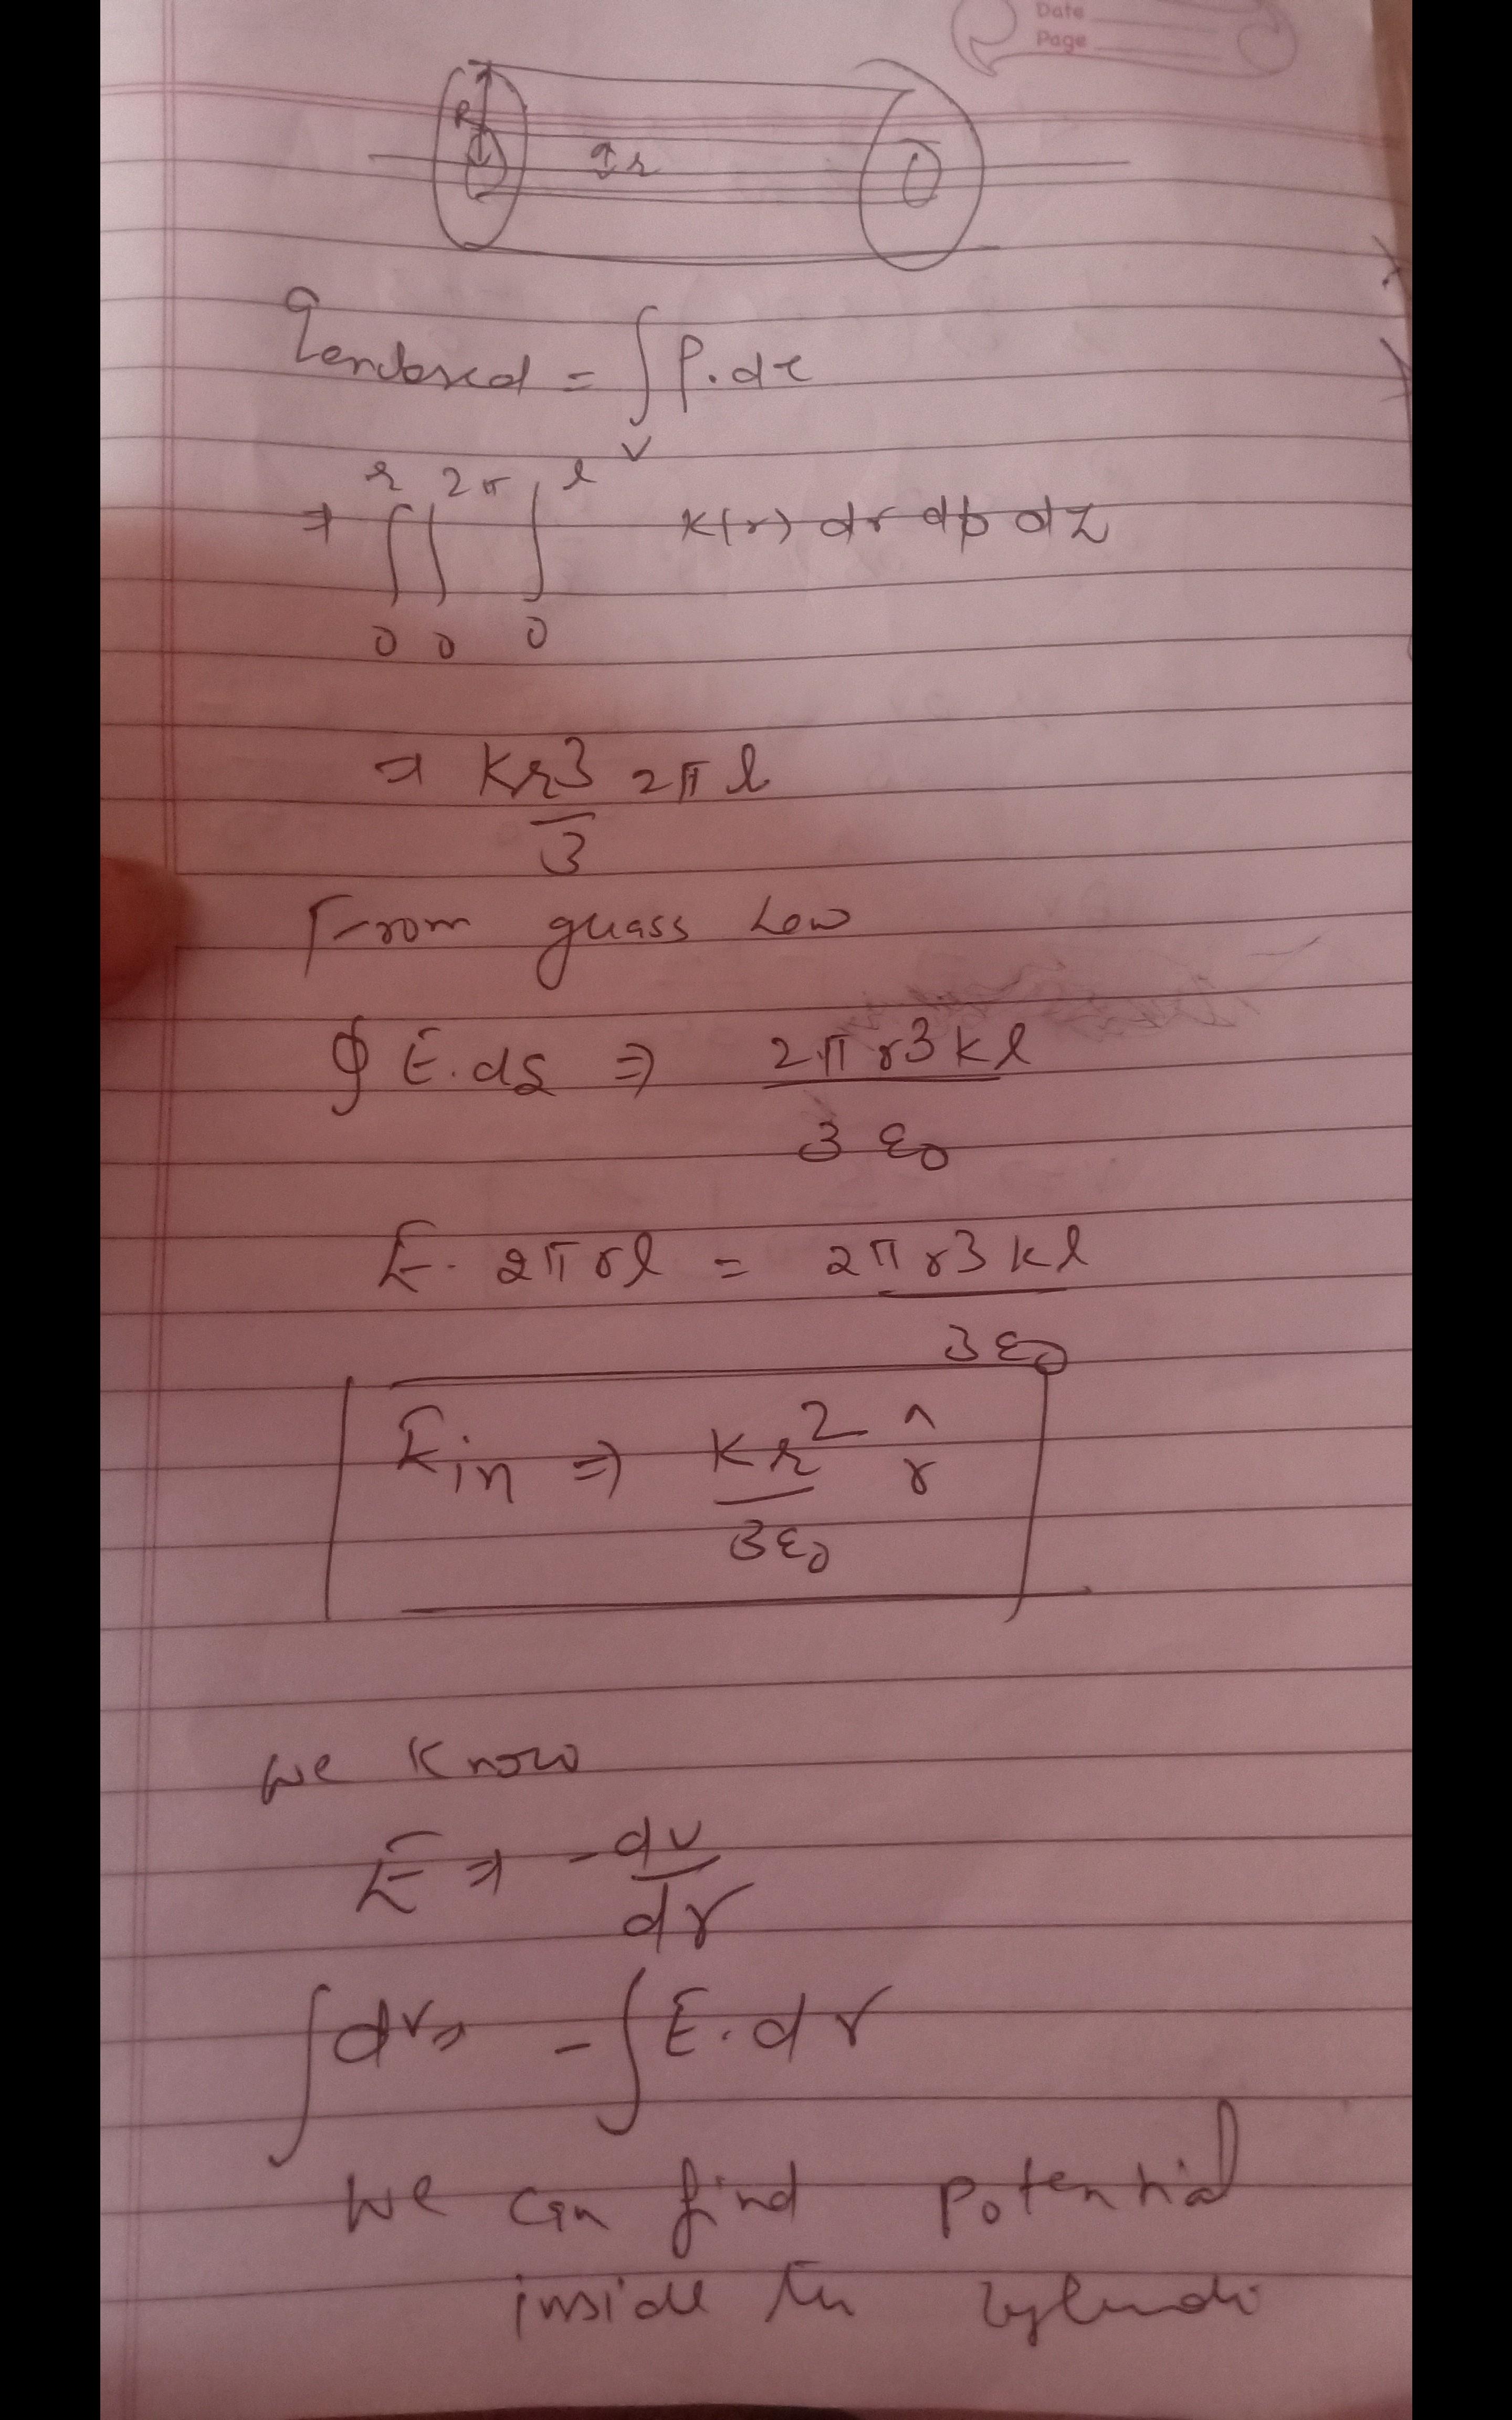 Date
Page
R
r
qenclosed = ∫ ρ.dτ
V
r 2π l
⇒ ∫∫ ∫ k(r) dr dϕ dz
0 0 0
⇒ Kr3 2π l
3
From guass Law
∮ E.ds ⇒ 2π r3 k l
3 ε0
E. 2π r l = 2π r3 k l
3 ε0
Ein ⇒ K r2 r̂
3 ε0
we know
E ⇒ -dv
dr
∫dv ⇒ -∫E.dr
we can find potential
inside the